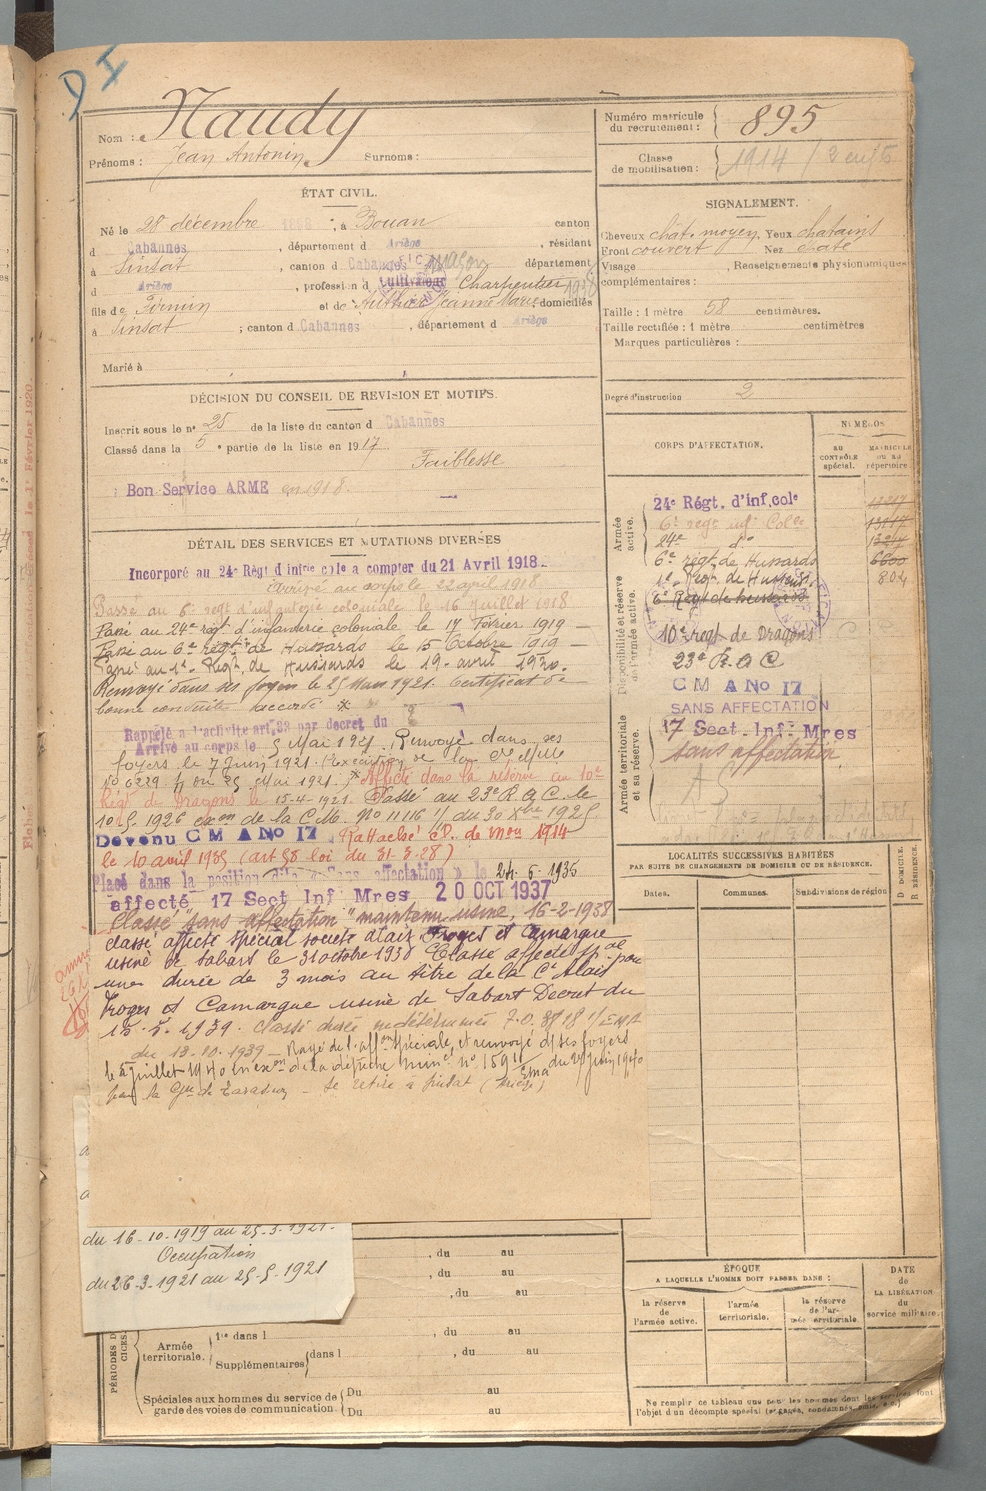 D I
Nom : Naudy
Prénoms : Jean Antonin Surnoms :
Numéro matricule du recrutement : 895
Classe de mobilisation : 1914 /
ÉTAT CIVIL.
Né le 28 décembre 1898, à Bouan canton
d Cabannes, département d Ariège, résidant
à Sinsat, canton d Cabannes département
d Ariège, profession d Cultivateur Charpentier
fils de Firmin et de Jeanne Marie domiciliés
à Sinsat ; canton d Cabannes, département d Ariège
Marié à
SIGNALEMENT.
Cheveux chât. moyen, Yeux chatains
Front couvert Nez
Visage , Renseignements physionomiques
complémentaires :
Taille : 1 mètre 58 centimètres.
Taille rectifiée : 1 mètre centimètres
Marques particulières :
Degré d'instruction 2
DÉCISION DU CONSEIL DE REVISION ET MOTIFS.
Inscrit sous le n° 25 de la liste du canton d Cabannes
Classé dans la 5e partie de la liste en 1917
Faiblesse
Bon Service ARMÉ en 1918.
DÉTAIL DES SERVICES ET MUTATIONS DIVERSES
Incorporé au 24e Régt d infrie cole a compter du 21 Avril 1918
Arrivé au corps le 22 avril 1918
Passé au 6e regt d'infanterie coloniale le 16 juillet 1918
Passé au 24e regt d'infanterie coloniale le 17 Février 1919 —
Passé au 6e régt de Hussards le 15 Octobre 1919 —
Passé au 1er Régt de Hussards le 19 avril 1920.
Renvoyé dans ses foyers le 25 Mars 1921. Certificat de
bonne conduite accordé *
Rappelé à l'activité art. 33 par decret du
Arrivé au corps le 5 Mai 1921. Renvoyé dans ses
foyers le 7 Juin 1921. (exécution de la Cre Mlle
No 6229 du 25 Mai 1921.) * Affecté dans la réserve au 10e
Régt de Dragons le 15-4-1921. Passé au 23e R.A.C. le
10.5.1926 exon de la C.M. No 11116 1/ du 30 Xbre 1925.
Devenu C M A No 17. Rattaché cl. de mon 1914
le 10 avril 1935 (art 58 loi du 31-3-28)
Placé dans la position dite « Sans affectation » le 24.6-1935
affecté 17 Sect Inf Mres 20 OCT 1937
Classé "sans affectation" maintenu usine, 16-2-1938
classé affecté spécial société Alais Froges et Camargue
usine de Sabart le 31 octobre 1938 Classé affecté spal pour
une durée de 3 mois au titre de la Cie Alais
Froges et Camargue usine de Sabart Decret du
15.5.1939. Classé durée indéterminée
du 13-10-1939 — Rayé de l'affon spéciale et renvoyé ds ses foyers
le 5 juillet 1940 en exon de la dépêche minelle n° 1591 Ema du 24 juin 1940
par la Gie de Tarascon — Se retire à Sinsat (Ariège)
du 16-10-1919 au 25-3-1921.
Occupation
du 26-3-1921 au 25-5-1921
CORPS D'AFFECTATION.
NUMÉROS
AU CONTRÔLE spécial.
MATRICULE OU AU répertoire.
Armée active.
24e Régt. d'inf, cole
6e regt inf Colle
24e do
6e régt de Hussards
1er Régt de Hussards
6e Régt de hussards
13217
6600
804
Disponibilité et réserve de l'armée active.
10e regt de Dragons
23e R.A.C
C M A No 17
SANS AFFECTATION
17 Sect. Inf. Mres
sans affectation
Armée territoriale et sa réserve.
AS
LOCALITÉS SUCCESSIVES HABITÉES
PAR SUITE DE CHANGEMENTS DE DOMICILE OU DE RÉSIDENCE.
Dates. Communes. Subdivisions de région
D DOMICILE. R RÉSIDENCE.
, du au
, du au
, du au
PÉRIODES D
CICES
Armée territoriale.
1re dans l , du au
Supplémentaires dans l , du au
Spéciales aux hommes du service de garde des voies de communication.
Du au
Du au
ÉPOQUE
A LAQUELLE L'HOMME DOIT PASSER DANS :
la réserve de l'armée active.
l'armée territoriale.
la réserve de l'armée territoriale.
DATE de LA LIBÉRATION du service militaire.
Ne remplir ce tableau que pour les hommes dont les services font
l'objet d'un décompte spécial (engagés, condamnés, omis, etc.)